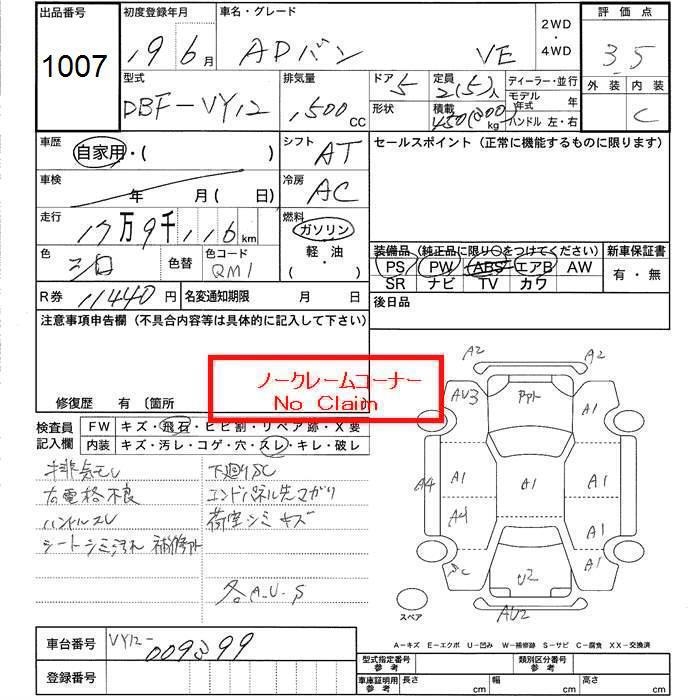 出品番号 初度登録年月 車名・グレード 2WD・4WD 評価点
1007 19 6月 ADバン VE 3.5
型式 排気量 ドア 5 定員 2(5)人 ディーラー・並行 外装 内装
DBF-VY12 1,500CC 形状 積載 450(300)kg モデル年式 年 C
ハンドル 左・右
車歴 自家用・( ) シフト AT セールスポイント(正常に機能するものに限ります)
車検 年 月( 日) 冷房 AC
走行 17万9千116km 燃料 ガソリン 軽・油 ( ・ )
色 シロ 色替 色コード QM1
装備品(純正品に限り○をつけてください) 新車保証書
PS PW ABS エアB AW 有・無
SR ナビ TV カワ
R券 11440円 名変通知期限 月 日 後日品
注意事項申告欄(不具合内容等は具体的に記入して下さい)
ノークレームコーナー
No Claim
修復歴 有 〔箇所
検査員記入欄 FW キズ・飛石・ヒビ割・リペア跡・X要
内装 キズ・汚レ・コゲ・穴・スレ・キレ・破レ
排気モレ 下廻りSC
右電格不良 エンドパネル先マガリ
ハンドルスレ 荷室シミキズ
シートシミ汚れ 補修跡
各A.U.S
A2 A2
AU3 Ppt A1
A4 A1 A1 A1
A4 A1
C U2 A1
AU2
スペア
A-キズ E-エクボ U-凹み W-補修跡 S-サビ C-腐食 XX-交換済
車台番号 VY12-009399
登録番号
型式指定番号 参考 類別区分番号 参考
車庫証明用 参考 長さ cm 幅 cm 高さ cm